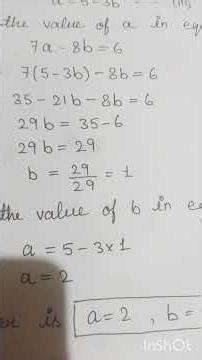 a = 5 - 3b (iii)
the value of a in eq
7a - 8b = 6
7(5-3b) - 8b = 6
35 - 21b - 8b = 6
29b = 35 - 6
29b = 29
b = 29/29 = 1
the value of b in e
a = 5 - 3×1
a = 2
er is a = 2 , b =
InShOt